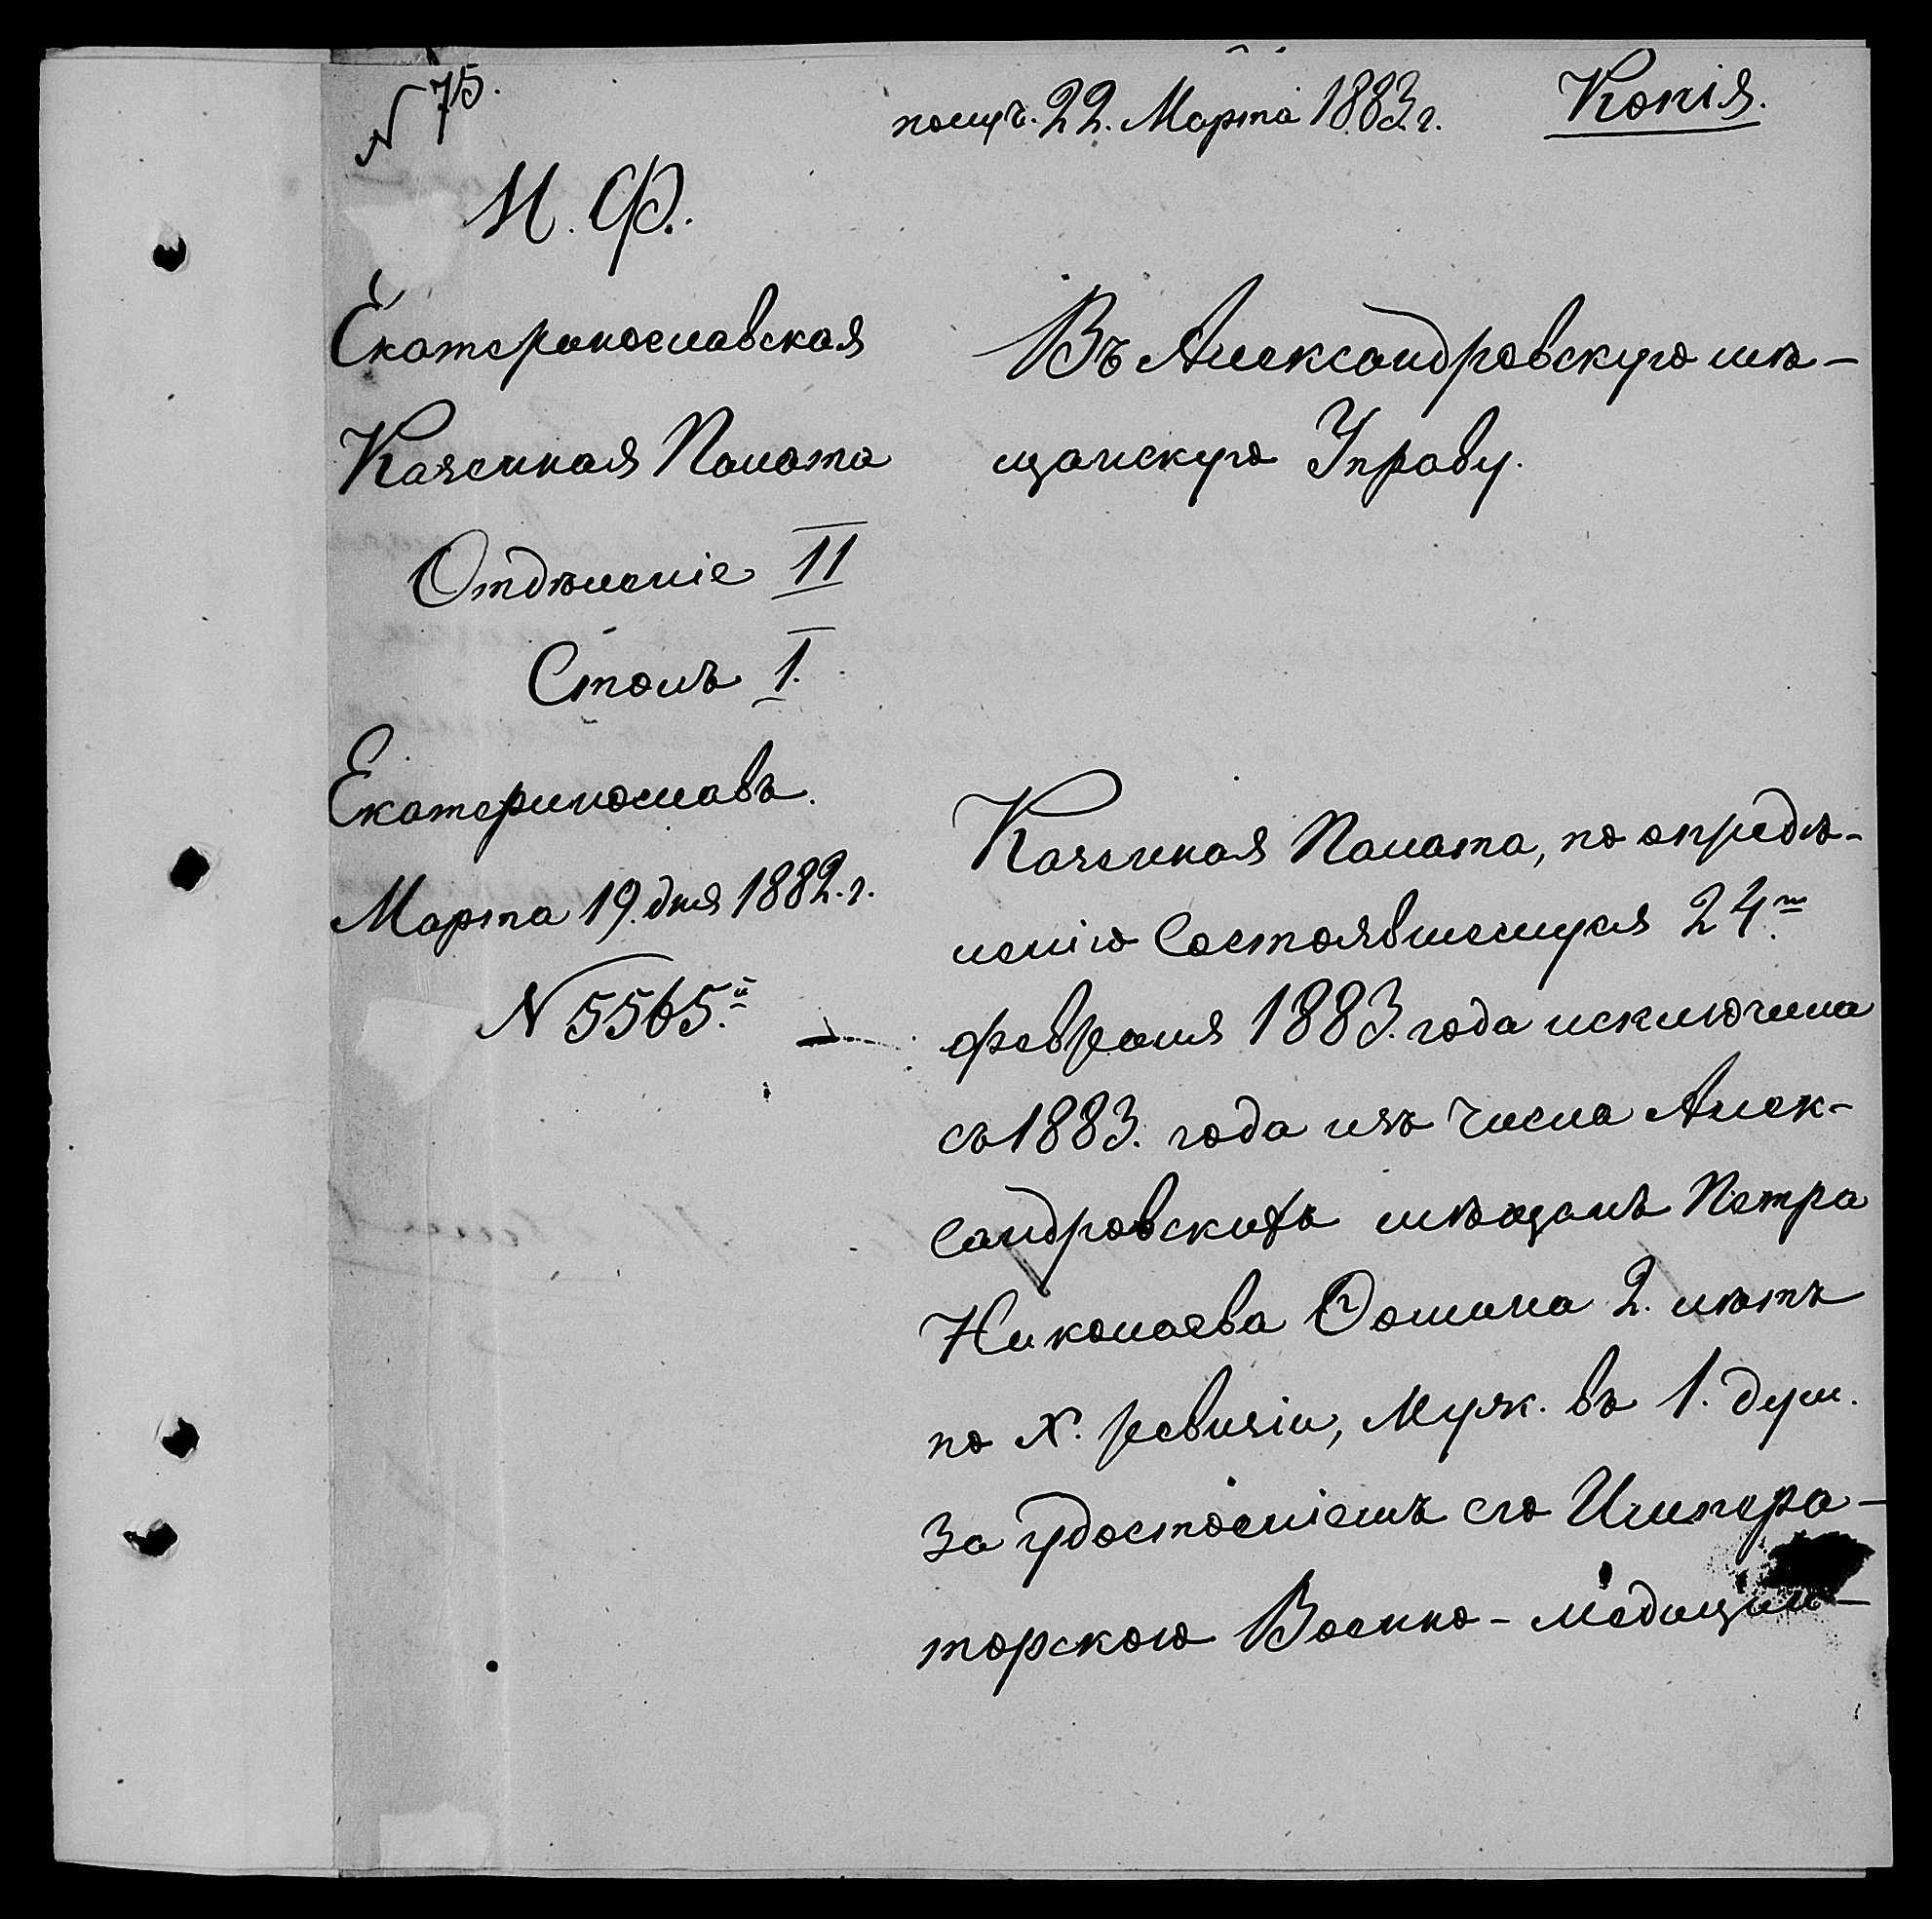 N 75.
получ. 22. Марта 1883. г.
Копія.
М. Ф.
Екатеринославская
Казенная Палата
Отдѣленіе II
Столъ 1.
Екатеринославъ.
Марта 19. дня 1882. г.
N 5565.й
Въ Александровскую мѣ-
щанскую Управу.
Казенная Палата, по опредѣ-
ленію состоявшемуся 24го
февраля 1883. года исключила
съ 1883. года изъ числа Алек-
сандровскихъ мѣщанъ Петра
Николаева 2. лѣтъ
по X. ревизіи, Муж. въ 1. душ.
за удостоеніемъ его Импера-
торскою Военно-Медицин-